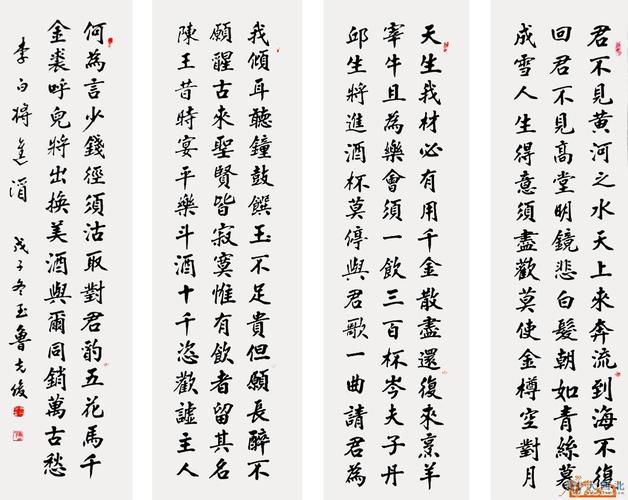 君不見黃河之水天上來奔流到海不復
回君不見高堂明鏡悲白髮朝如青絲暮
成雪人生得意須盡歡莫使金樽空對月
天生我材必有用千金散盡還復來烹羊
宰牛且為樂會須一飲三百杯岑夫子丹
邱生將進酒杯莫停與君歌一曲請君為
我傾耳聽鐘鼓饌玉不足貴但願長醉不
願醒古來聖賢皆寂寞惟有飲者留其名
陳王昔時宴平樂斗酒十千恣歡謔主人
何為言少錢徑須沽取對君酌五花馬千
金裘呼兒將出換美酒與爾同銷萬古愁
李白將進酒 戊子冬玉魯克俊